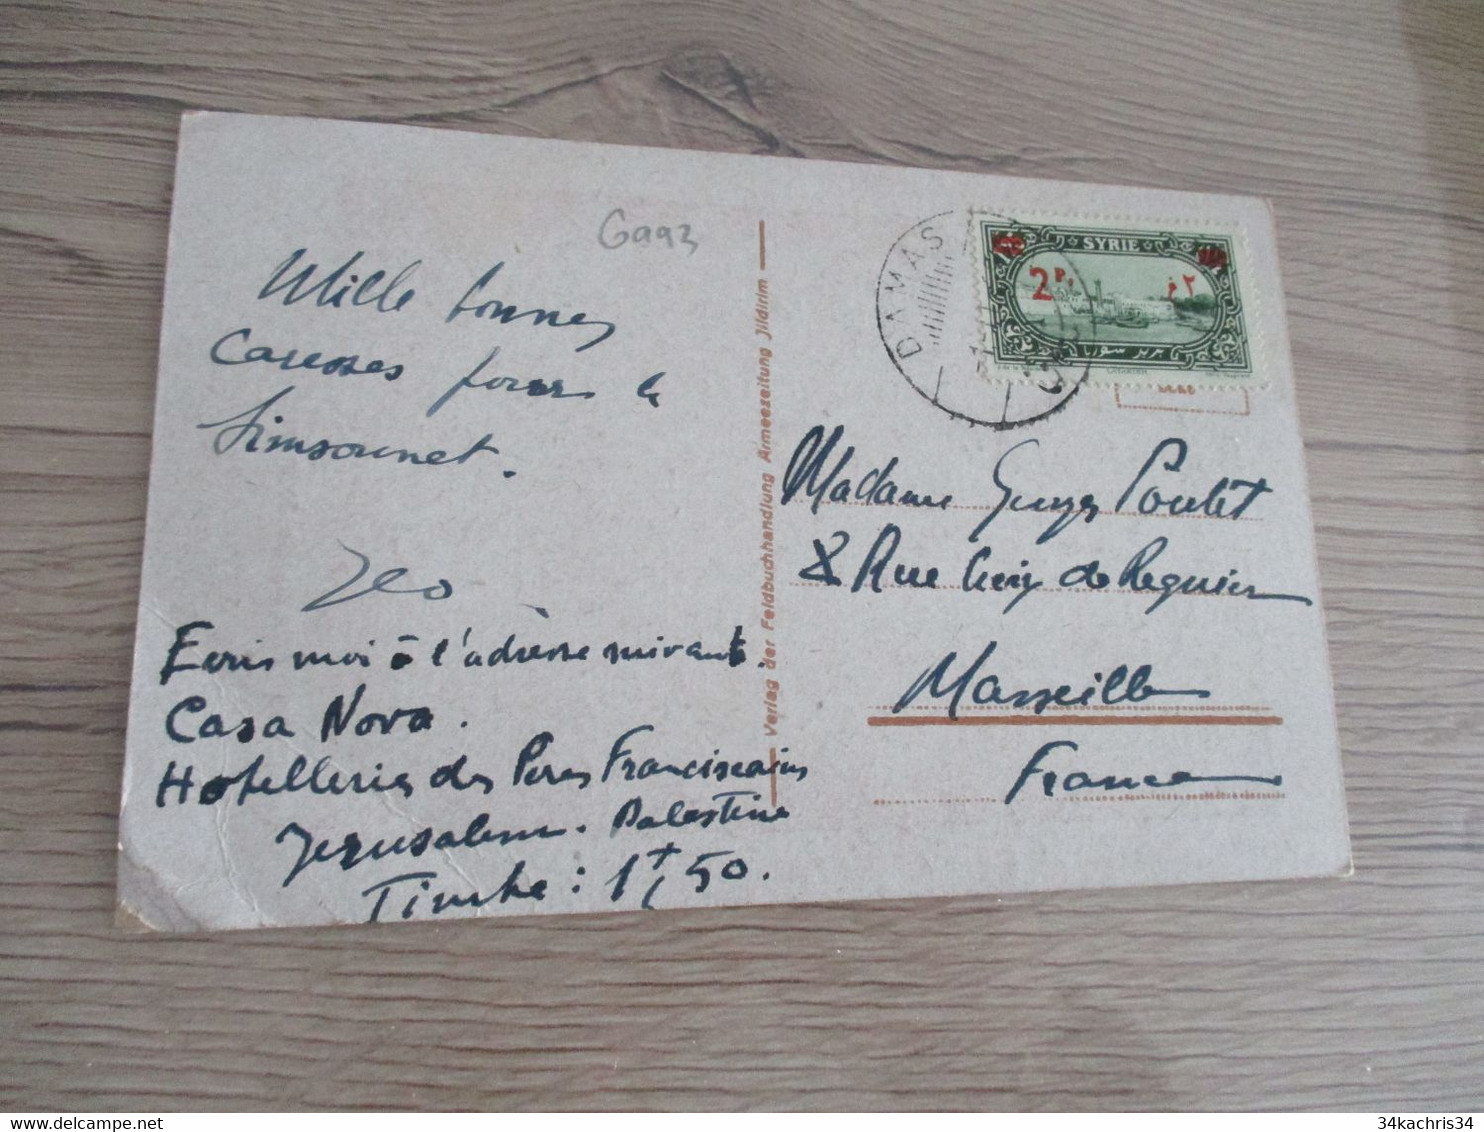 Gaa3
Mille bonnes
Caresses pour le
Simsounet.
Jeo
Ecris moi à l'adresse suivante.
Casa Nova.
Hotellerie des Peres Franciscains
Jerusalem. Palestine
Timbre : 1f50.
Verlag der Feldbuchhandlung Armeezeitung Jildirim
DAMAS
SYRIE
2 P.
٢ غ
بريد سوريا
Madame Poulet
8 Rue Croix de Regnier
Marseille
France
34kachris34